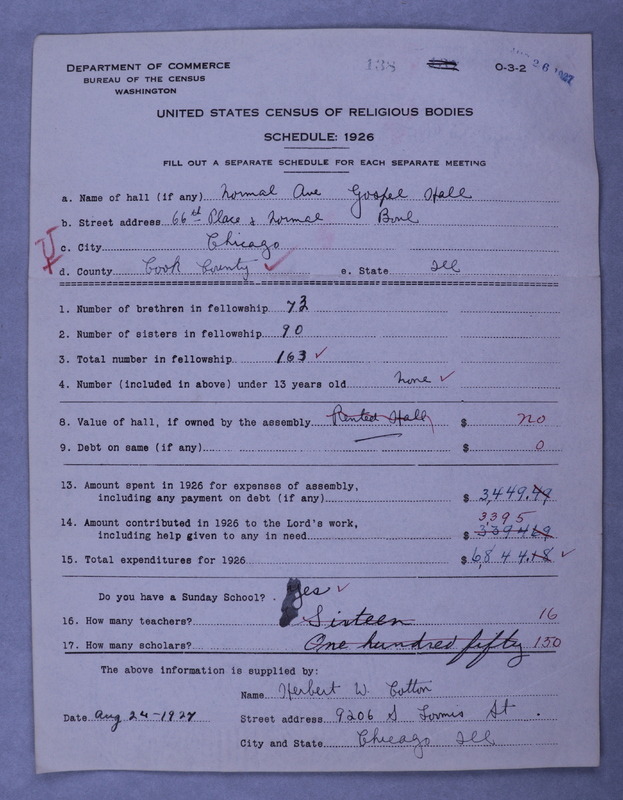 DEPARTMENT OF COMMERCE
BUREAU OF THE CENSUS
WASHINGTON
138
O-3-2
26 1927
UNITED STATES CENSUS OF RELIGIOUS BODIES
SCHEDULE: 1926
FILL OUT A SEPARATE SCHEDULE FOR EACH SEPARATE MEETING
a. Name of hall (if any) Normal Ave Gospel Hall
b. Street address 66th Place & Normal Boul
c. City Chicago
d. County Cook County e. State Ill
1. Number of brethren in fellowship 73
2. Number of sisters in fellowship 90
3. Total number in fellowship 163
4. Number (included in above) under 13 years old none
8. Value of hall, if owned by the assembly Rented Hall $ no
9. Debt on same (if any) $ 0
13. Amount spent in 1926 for expenses of assembly,
including any payment on debt (if any) $ 3,449.49
3,395
14. Amount contributed in 1926 to the Lord's work,
including help given to any in need $ 3394 69
15. Total expenditures for 1926 $ 6,844.18
Do you have a Sunday School? Yes
16. How many teachers? Sixteen 16
17. How many scholars? One hundred fifty 150
The above information is supplied by:
Name Herbert W. Cotton
Date Aug 24-1927 Street address 9206 S Loomis St.
City and State Chicago Ill